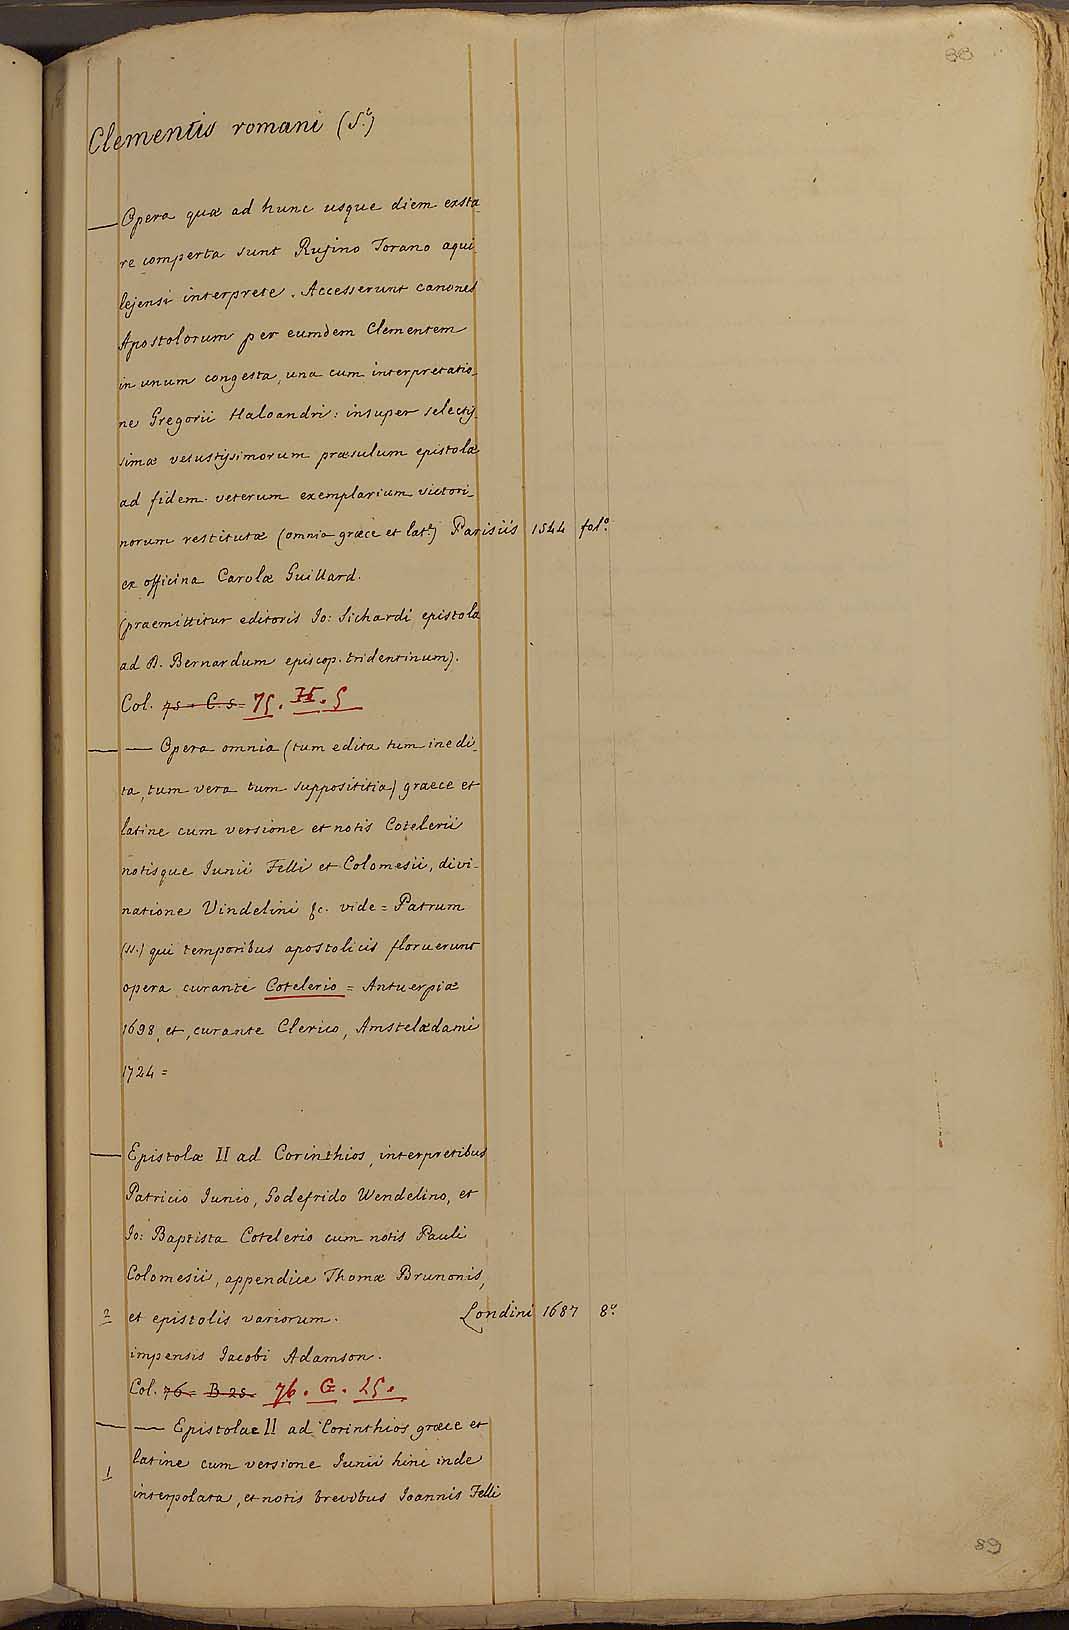 88
Clementis romani (S.ᵗⁱ)
— Opera quæ ad hunc usque diem exsta-
re comperta sunt Rufino Torano aqui-
lejensi interprete. Accesserunt canones
Apostolorum per eumdem Clementem
in unum congesta, una cum interpretatio-
ne Gregorii Haloandri: insuper selectis-
simæ vetustissimorum præsulum epistolæ
ad fidem veterum exemplarium victori-
norum restitutæ (omnia græce et lat.ᵉ) Parisiis 1544 fol.º
ex officina Carolæ Guillard.
(praemittitur editoris Jo: Sichardi epistola
ad B. Bernardum episcop. tridentinum).
Col. 75 = C. 5. 75. H. 5
— — Opera omnia (tum edita tum inedi-
ta, tum vera tum supposititia) graece et
latine cum versione et notis Cotelerii
notisque Junii Felli et Colomesii, divi-
natione Vindelini &c. vide = Patrum
(SS.) qui temporibus apostolicis floruerunt
opera curante Cotelerio = Antuerpiæ
1698, et, curante Clerico, Amstelædami
1724 =
— Epistolæ II ad Corinthios, interpretibus
Patricio Junio, Godefrido Wendelino, et
Jo: Baptista Cotelerio cum notis Pauli
Colomesii, appendice Thomæ Brunonis,
2 et epistolis variorum. Londini 1687 8.º
impensis Jacobi Adamson.
Col. 76 = B 25. 76. G. 25.
— — Epistolae II ad Corinthios græce et
latine cum versione Junii hinc inde
1 interpolata, et notis brevibus Joannis Felli
89